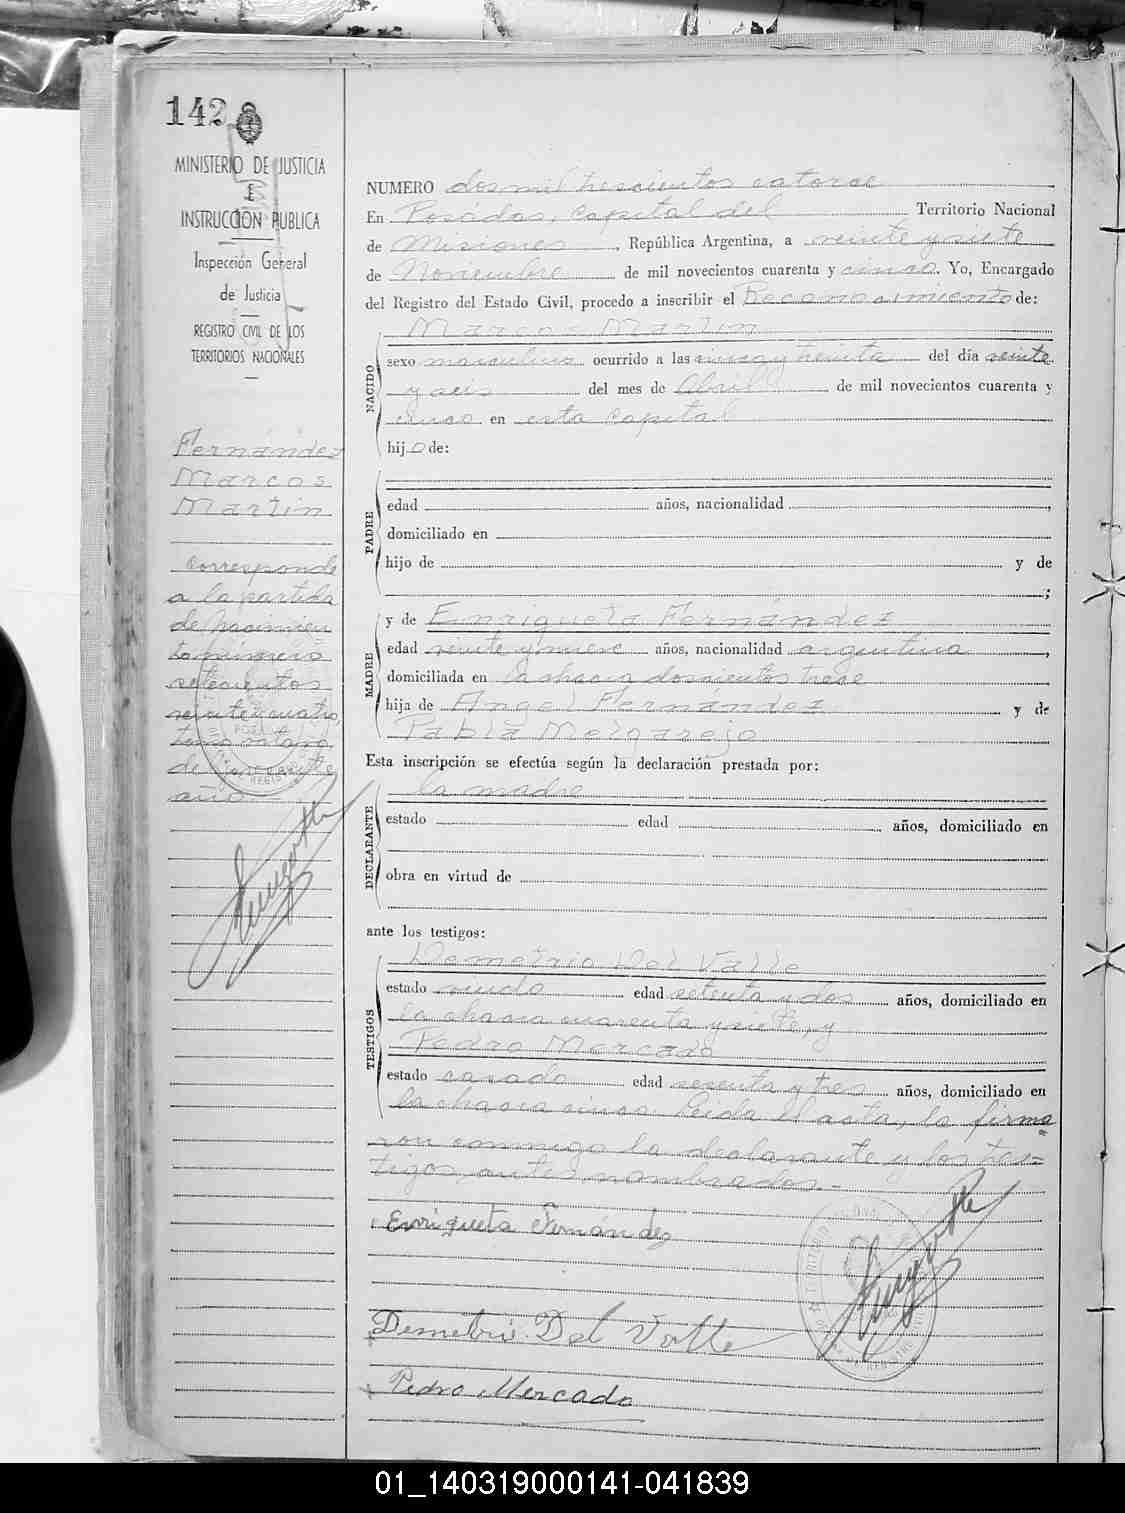 142
MINISTERIO DE JUSTICIA
E
INSTRUCCION PUBLICA
Inspección General
de Justicia
REGISTRO CIVIL DE LOS
TERRITORIOS NACIONALES
Fernández
Marcos
Martin
Corresponde
a la partida
de nacimien
to número
setecientos
veinte y cuatro,
tomo
de presente
año
NUMERO dos mil trescientos catorce
En Posadas, Capital del Territorio Nacional
de Misiones, República Argentina, a veinte y siete
de Noviembre de mil novecientos cuarenta y cinco. Yo, Encargado
del Registro del Estado Civil, procedo a inscribir el Reconocimiento de:
NACIDO
Marcos Martin
sexo masculino ocurrido a las cinco y treinta del día veinte
y seis del mes de Abril de mil novecientos cuarenta y
cinco en esta capital
hijo de:
PADRE
edad años, nacionalidad ,
domiciliado en
hijo de y de
;
MADRE
y de Enriqueta Fernández
edad veinte y nueve años, nacionalidad argentina,
domiciliada en la chacra doscientos trece
hija de Angel Fernández y de
Pabla Melgarejo
Esta inscripción se efectúa según la declaración prestada por:
DECLARANTE
la madre
estado edad años, domiciliado en
obra en virtud de
ante los testigos:
TESTIGOS
Demetrio Del Valle
estado viudo edad setenta y dos años, domiciliado en
la chacra cuarenta y siete, y
Pedro Mercado
estado casado edad sesenta y tres años, domiciliado en
la chacra cinco. Leida el acta, la firma
ron conmigo la declarante y los tes-
tigos antes nombrados.-
Enriqueta Fernández
Demetrio Del Valle
Pedro Mercado
01_140319000141-041839